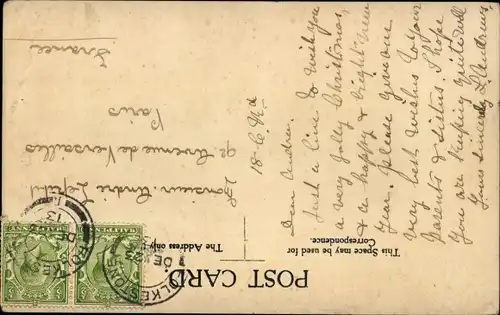 POST CARD
This Space may be used for
Correspondence.
The Address only
18. C. Rd
Dear Andrée.
Just a line to wish you
a very Jolly Christmas,
& a happy & bright New
Year. Please give our
very best wishes to your
parents & sisters I hope
you are keeping quite well
Yours sincerely
Monsieur André
Avenue de Versailles
Paris
France
FOLKESTONE
HALFPENNY
HALFPENNY